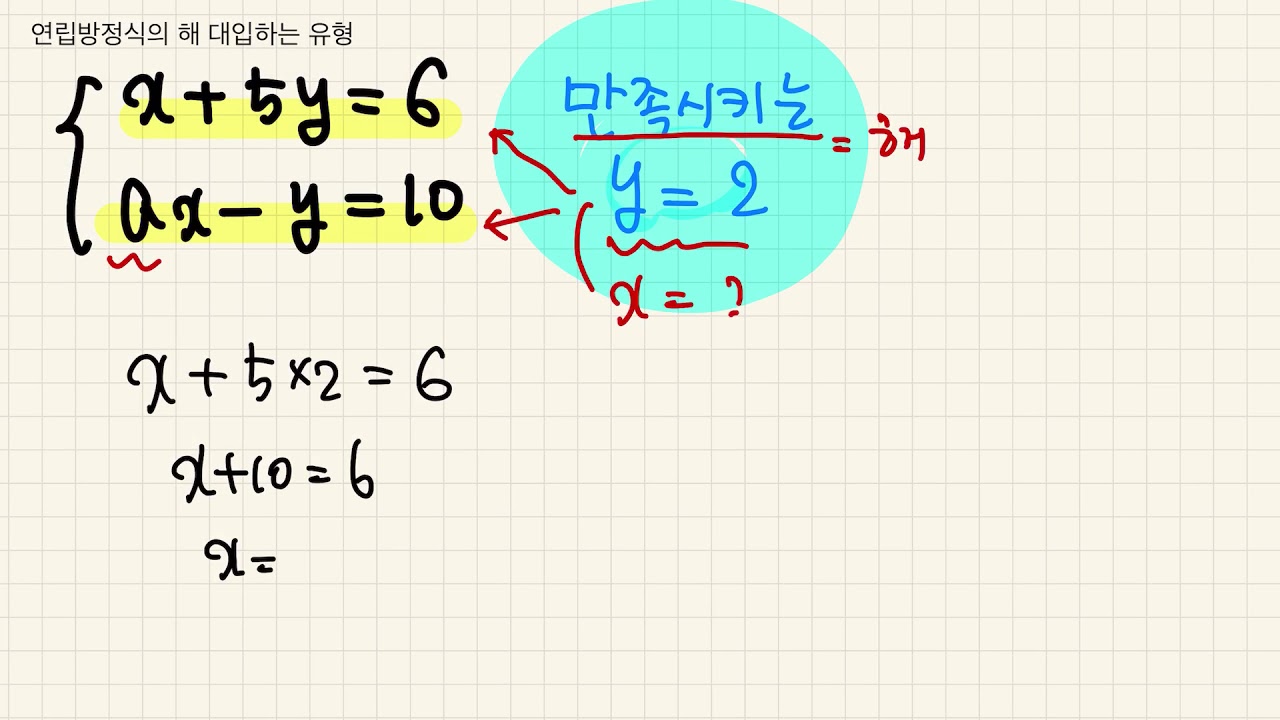 연립방정식의 해 대입하는 유형
x+5y=6
ax-y=10
만족시키는
=해
y=2
x=?
x+5×2=6
x+10=6
x=